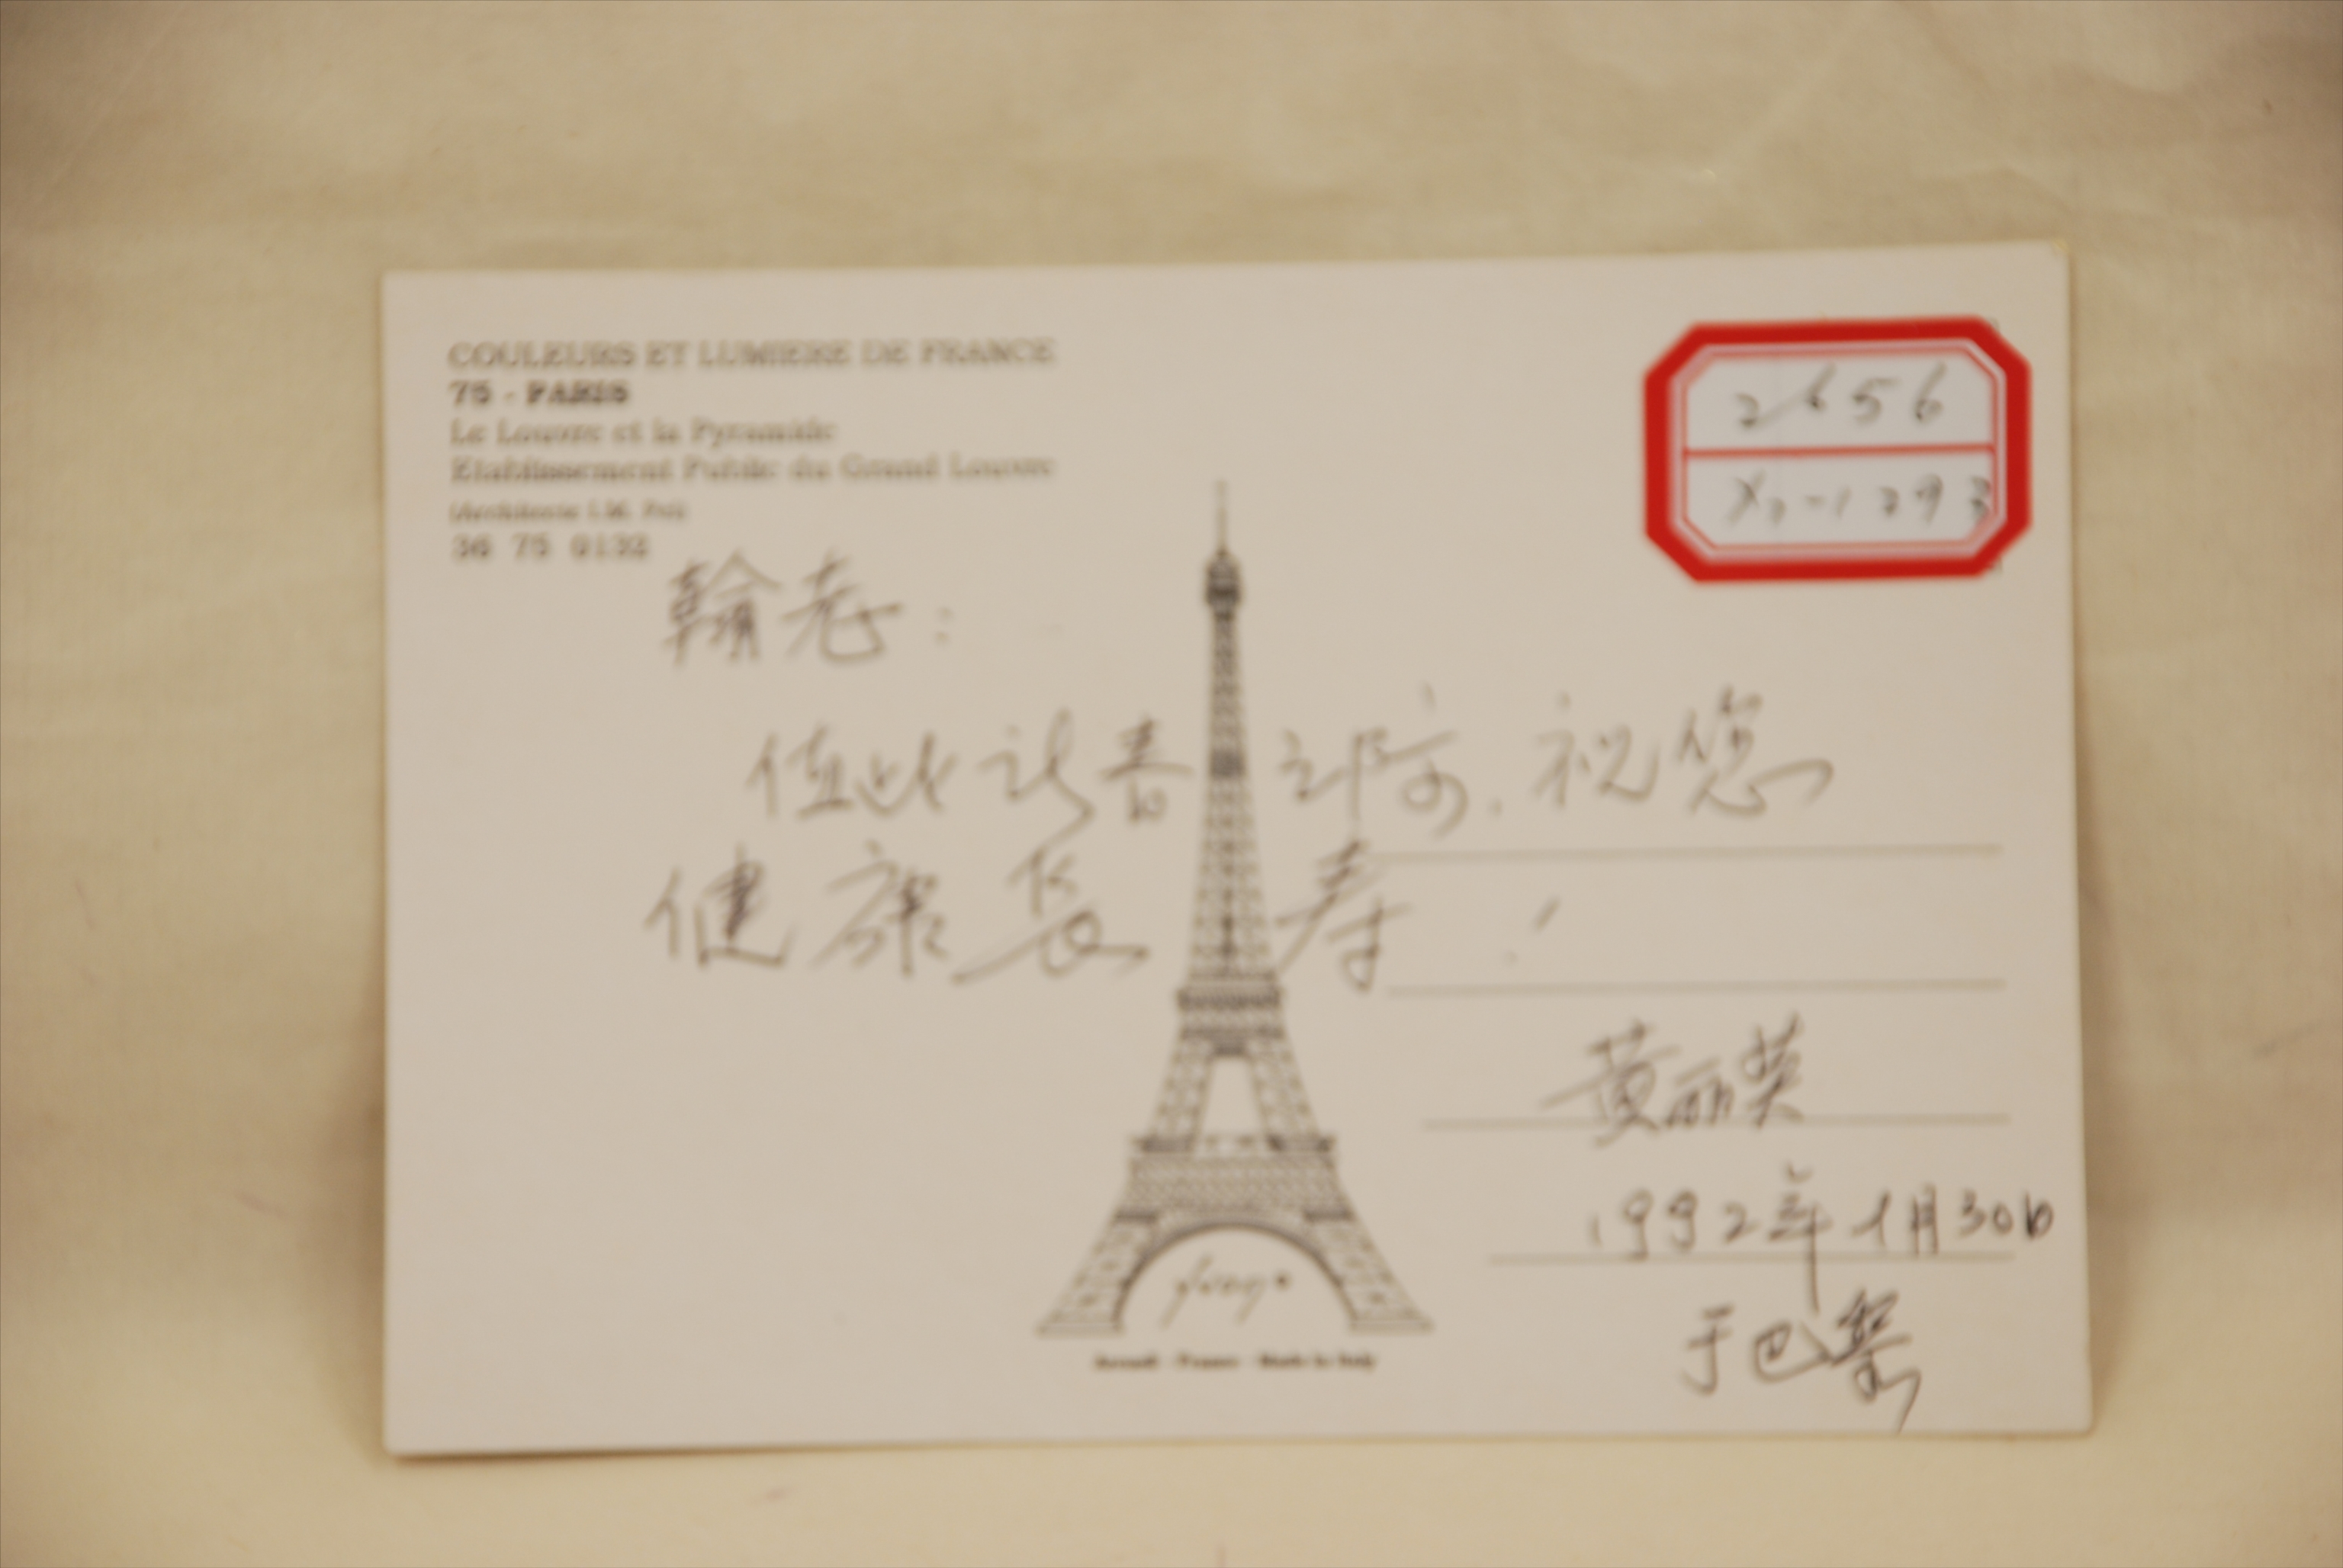 COULEURS ET LUMIERE DE FRANCE
75 - PARIS
Le Louvre et la Pyramide
Etablissement Public du Grand Louvre
(Architecte I.M. Pei)
36 75 0132
2656
翰老:
值此新春之际,祝您
健康长寿!
黄丽英
1992年1月30日
于巴黎
France - Made in Italy